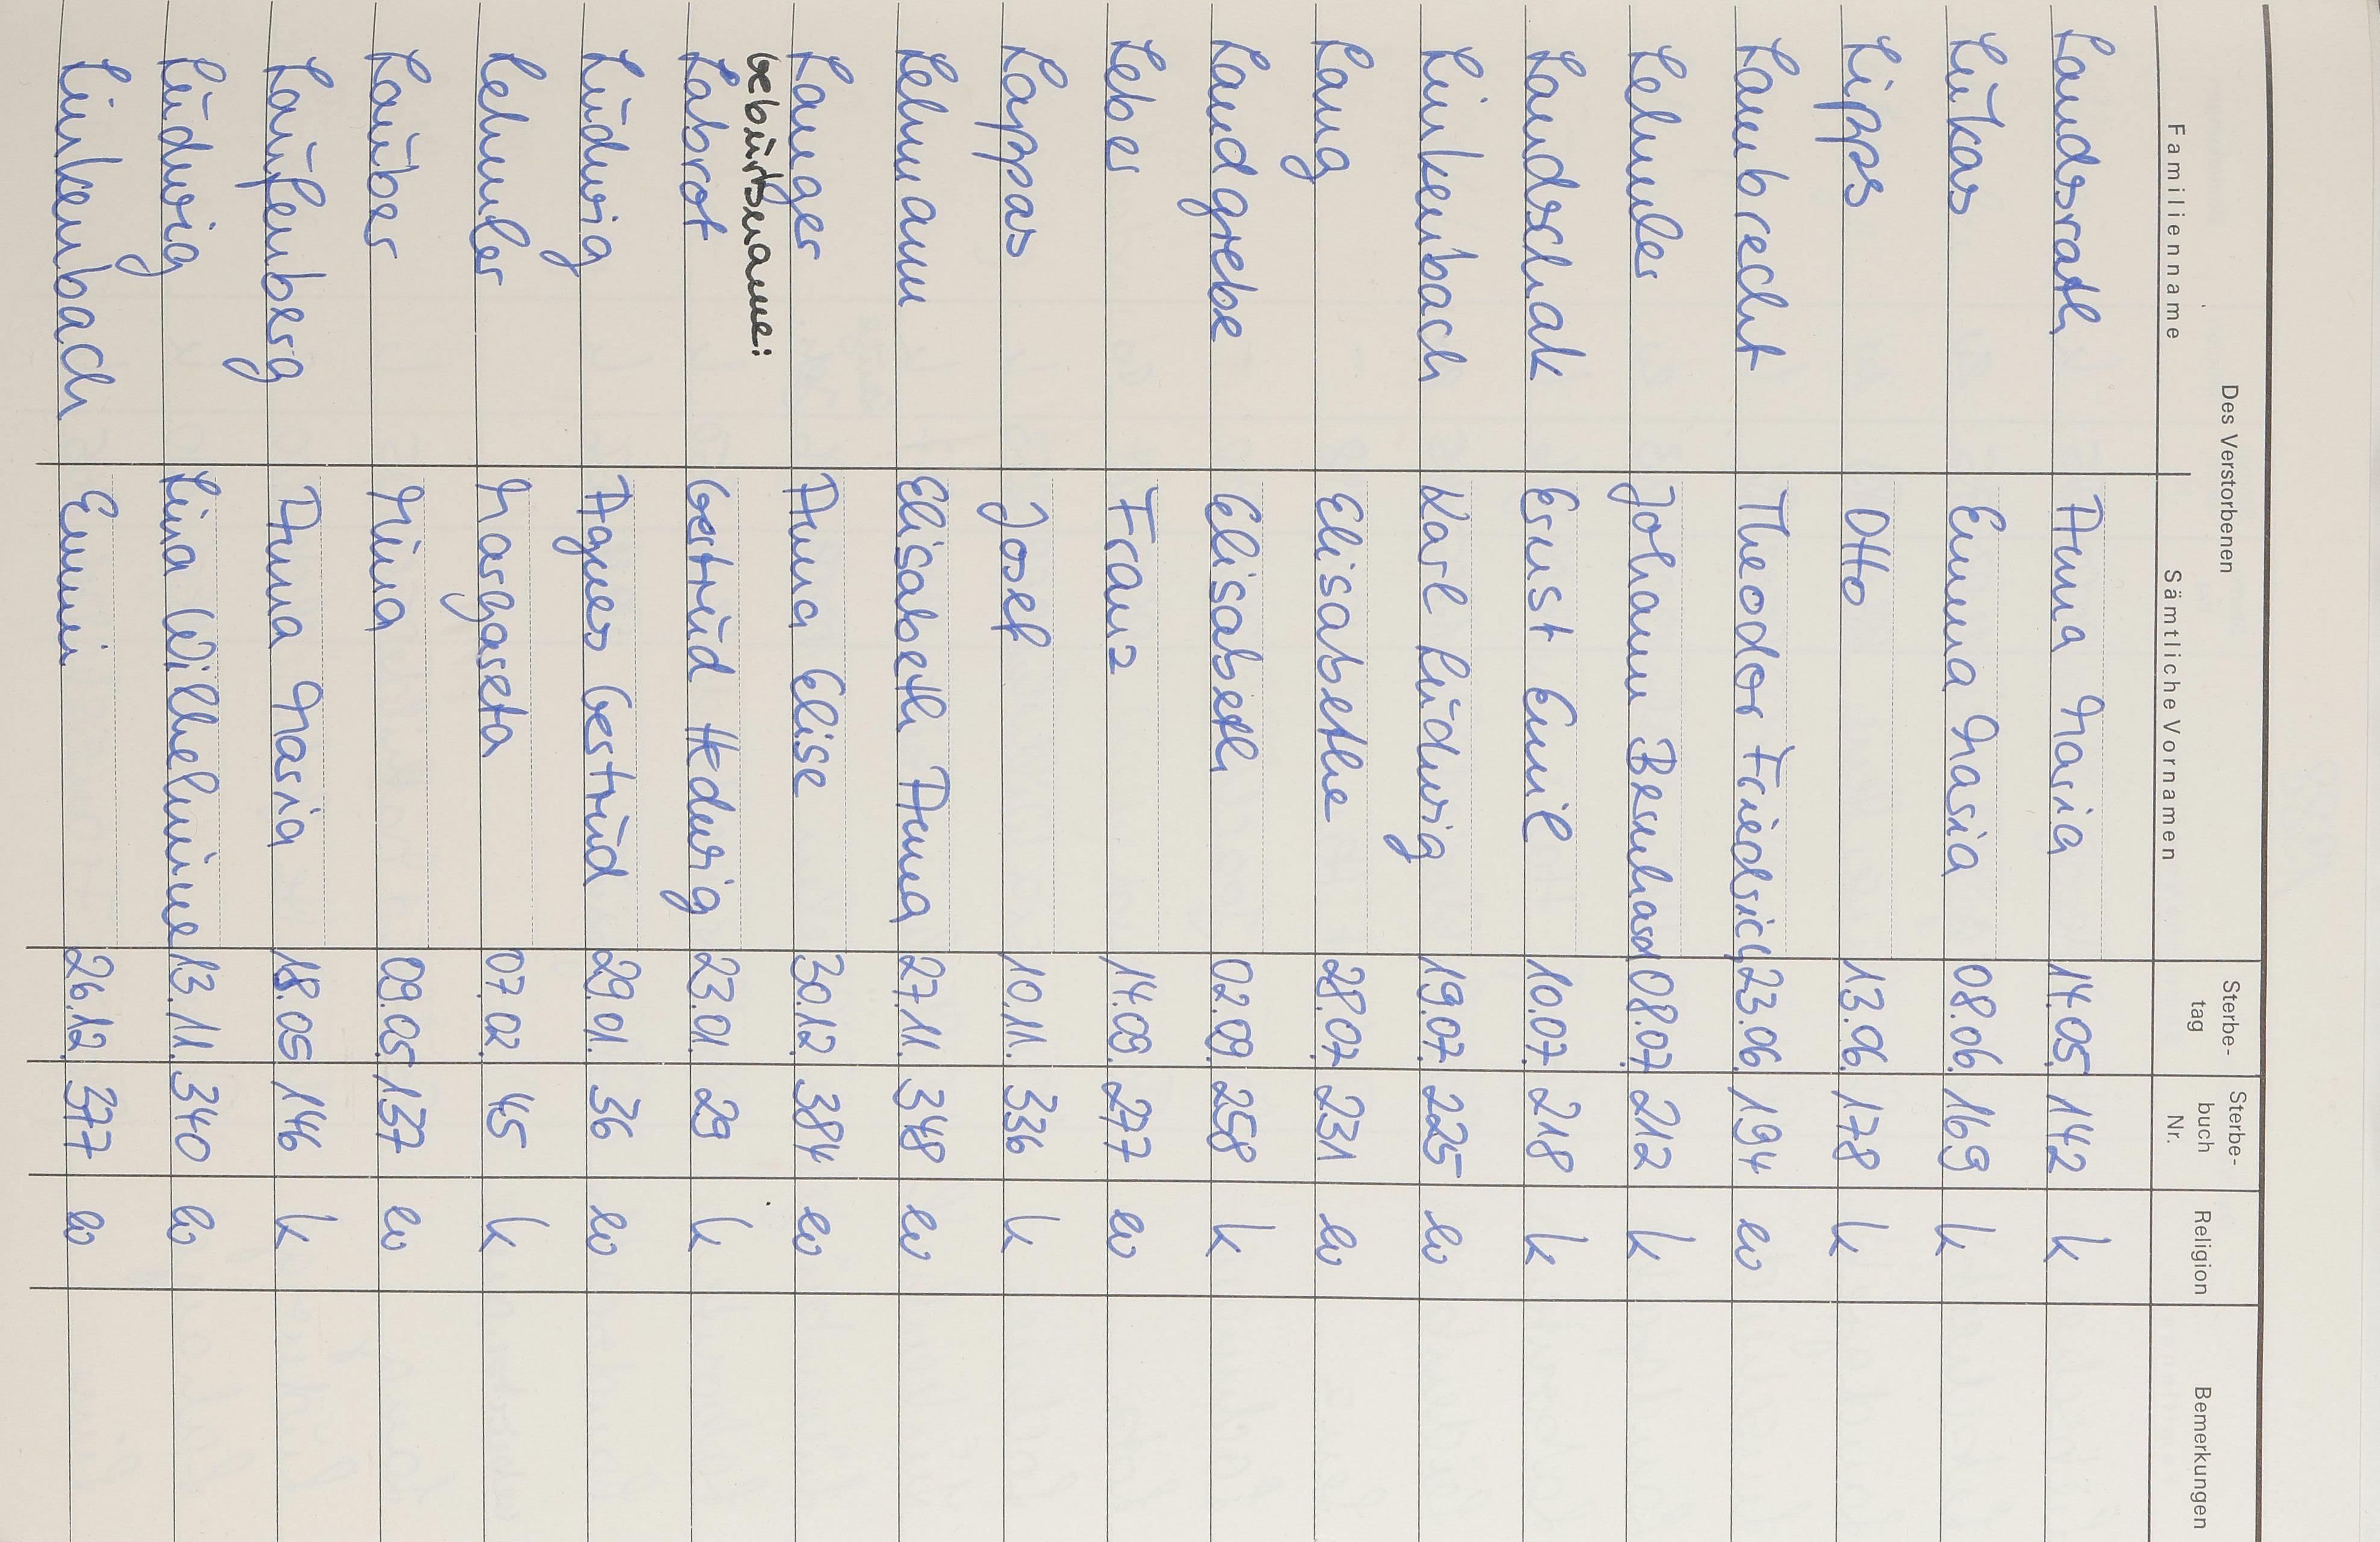 Des Verstorbenen
Familienname Sämtliche Vornamen Sterbe-tag Sterbe-buch Nr. Religion Bemerkungen
Landsrath Anna Maria 14.05. 142 k
Lukas Emma Maria 08.06. 169 k
Lipps Otto 13.06. 178 k
Lambrecht Theodor Friedrich 23.06. 194 ev
Lehmler Johann Bernhard 08.07. 212 k
Landschak Ernst Emil 10.07. 218 k
Linkenbach Karl Ludwig 19.07. 225 ev
Lang Elisabethe 28.07. 231 ev
Landgrebe Elisabeth 02.09. 258 k
Leber Franz 14.09. 277 ev
Lappas Josef 10.11. 336 k
Lehmann Elisabeth Anna 27.11. 348 ev
Langer Anna Elise 30.12. 384 ev
Geburtsname:
Labrot Gertrud Hedwig 23.01. 29 k
Ludwig Agnes Gertrud 29.01. 36 ev
Lehmler Margareta 07.02. 45 k
Lauber Mina 09.05. 137 ev
Laufenberg Anna Maria 18.05 146 k
Ludwig Lina Wilhelmine 13.11. 340 ev
Linkenbach Emmi 26.12. 377 ev